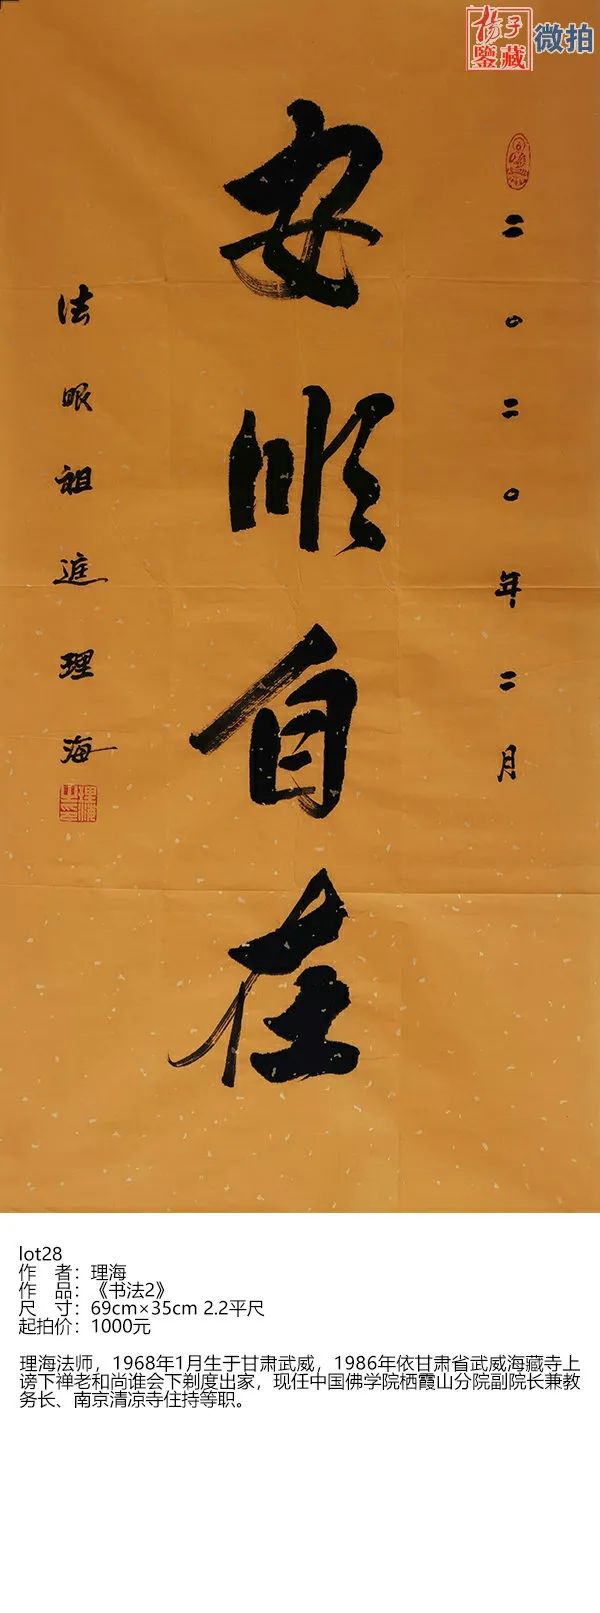 杨子
鉴藏
微拍
二〇二〇年二月
安顺自在
法眼祖遮理海
lot28
作　者：理海
作　品：《书法2》
尺　寸：69cm×35cm 2.2平尺
起拍价：1000元
理海法师，1968年1月生于甘肃武威，1986年依甘肃省武威海藏寺上
谤下禅老和尚谁会下剃度出家，现任中国佛学院栖霞山分院副院长兼教
务长、南京清凉寺住持等职。